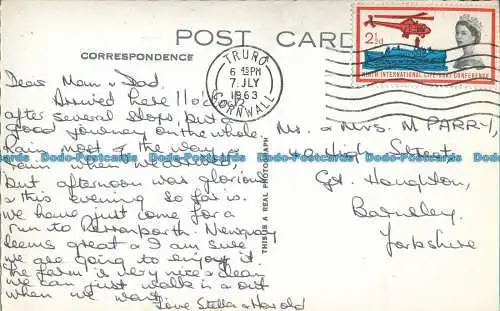 POST CARD
CORRESPONDENCE
TRURO
6 45 PM
7 JLY
1963
CORNWALL
2½d
NINTH INTERNATIONAL LIFE-BOAT CONFERENCE
Dear Mam & Dad.
Arrived here 11 o'clock
after several stops, but a
good journey on the whole.
Rain most of the way &
rain when we arrived
but afternoon was glorious
& this evening so far is.
we have just come for a
run to Perranporth. Newquay
seems great & I am sure
we are going to enjoy it
The farm is very nice & clean
we can just walk in & out
when we want.
Love Stella & Harold
THIS IS A REAL PHOTOGRAPH
Mr. & Mrs. M PARRY,
40 High Street,
Gt. Houghton,
Barnsley.
Yorkshire
Dodo-Postcards Dodo-Postcards Dodo-Postcards